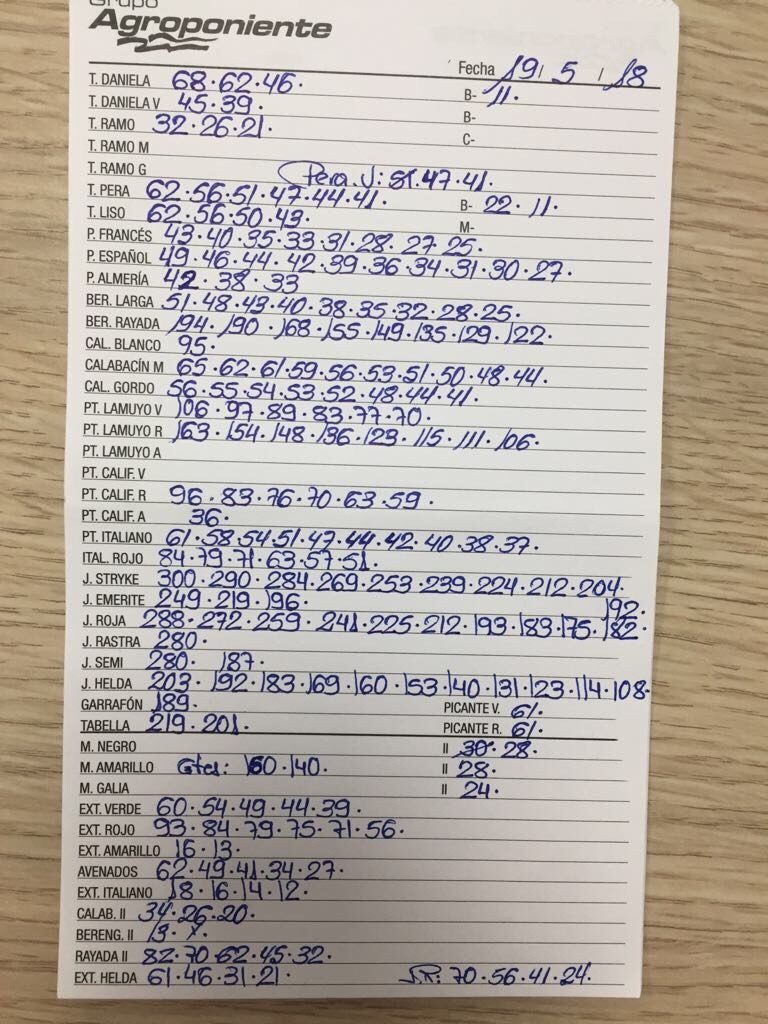 Grupo
Agroponiente
Fecha 19 / 5 / 18
T. DANIELA 68·62·46. B- 11.
T. DANIELA V 45·39. B-
T. RAMO 32·26·21. C-
T. RAMO M
T. RAMO G Pera V: 51.47·41.
T. PERA 62·56·51·47·44·41. B- 22·11.
T. LISO 62·56·50·43. M-
P. FRANCÉS 43·40·35·33·31·28. 27·25.
P. ESPAÑOL 49·46·44·42·39·36·34·31·30·27.
P. ALMERÍA 42·38·33
BER. LARGA 51·48·43·40·38·35·32·28·25.
BER. RAYADA 194·190·168·155·149·135·129·122.
CAL. BLANCO 95.
CALABACÍN M 65·62·61·59·56·53·51·50·48·44.
CAL. GORDO 56·55·54·53·52·48·44·41.
PT. LAMUYO V 106·97·89·83·77·70.
PT. LAMUYO R 163·154·148·136·123·115·111·106.
PT. LAMUYO A
PT. CALIF. V
PT. CALIF. R 96·83·76·70·63·59.
PT. CALIF. A 36.
PT. ITALIANO 61·58·54·51·47·44·42·40·38·37.
ITAL. ROJO 84·79·71·63·57·51.
J. STRYKE 300·290·284·269·253·239·224·212·204.
J. EMERITE 249·219·196. 192.
J. ROJA 288·272·259·241·225·212·193·183·175·182.
J. RASTRA 280.
J. SEMI 280. 187.
J. HELDA 203·192·183·169·160·153·140·131·123·114·108.
GARRAFÓN 189. PICANTE V. 61.
TABELLA 219·201. PICANTE R. 61.
M. NEGRO II 30·28.
M. AMARILLO Gtes: 160·140. II 28.
M. GALIA II 24.
EXT. VERDE 60·54·49·44·39.
EXT. ROJO 93·84·79·75·71·56.
EXT. AMARILLO 16·13.
AVENADOS 62·49·41·34·27.
EXT. ITALIANO 18·16·14·12.
CALAB. II 34·26·20.
BERENG. II 13·
RAYADA II 82·70·62·45·32.
EXT. HELDA 61·46·31·21. 70·56·41·24.